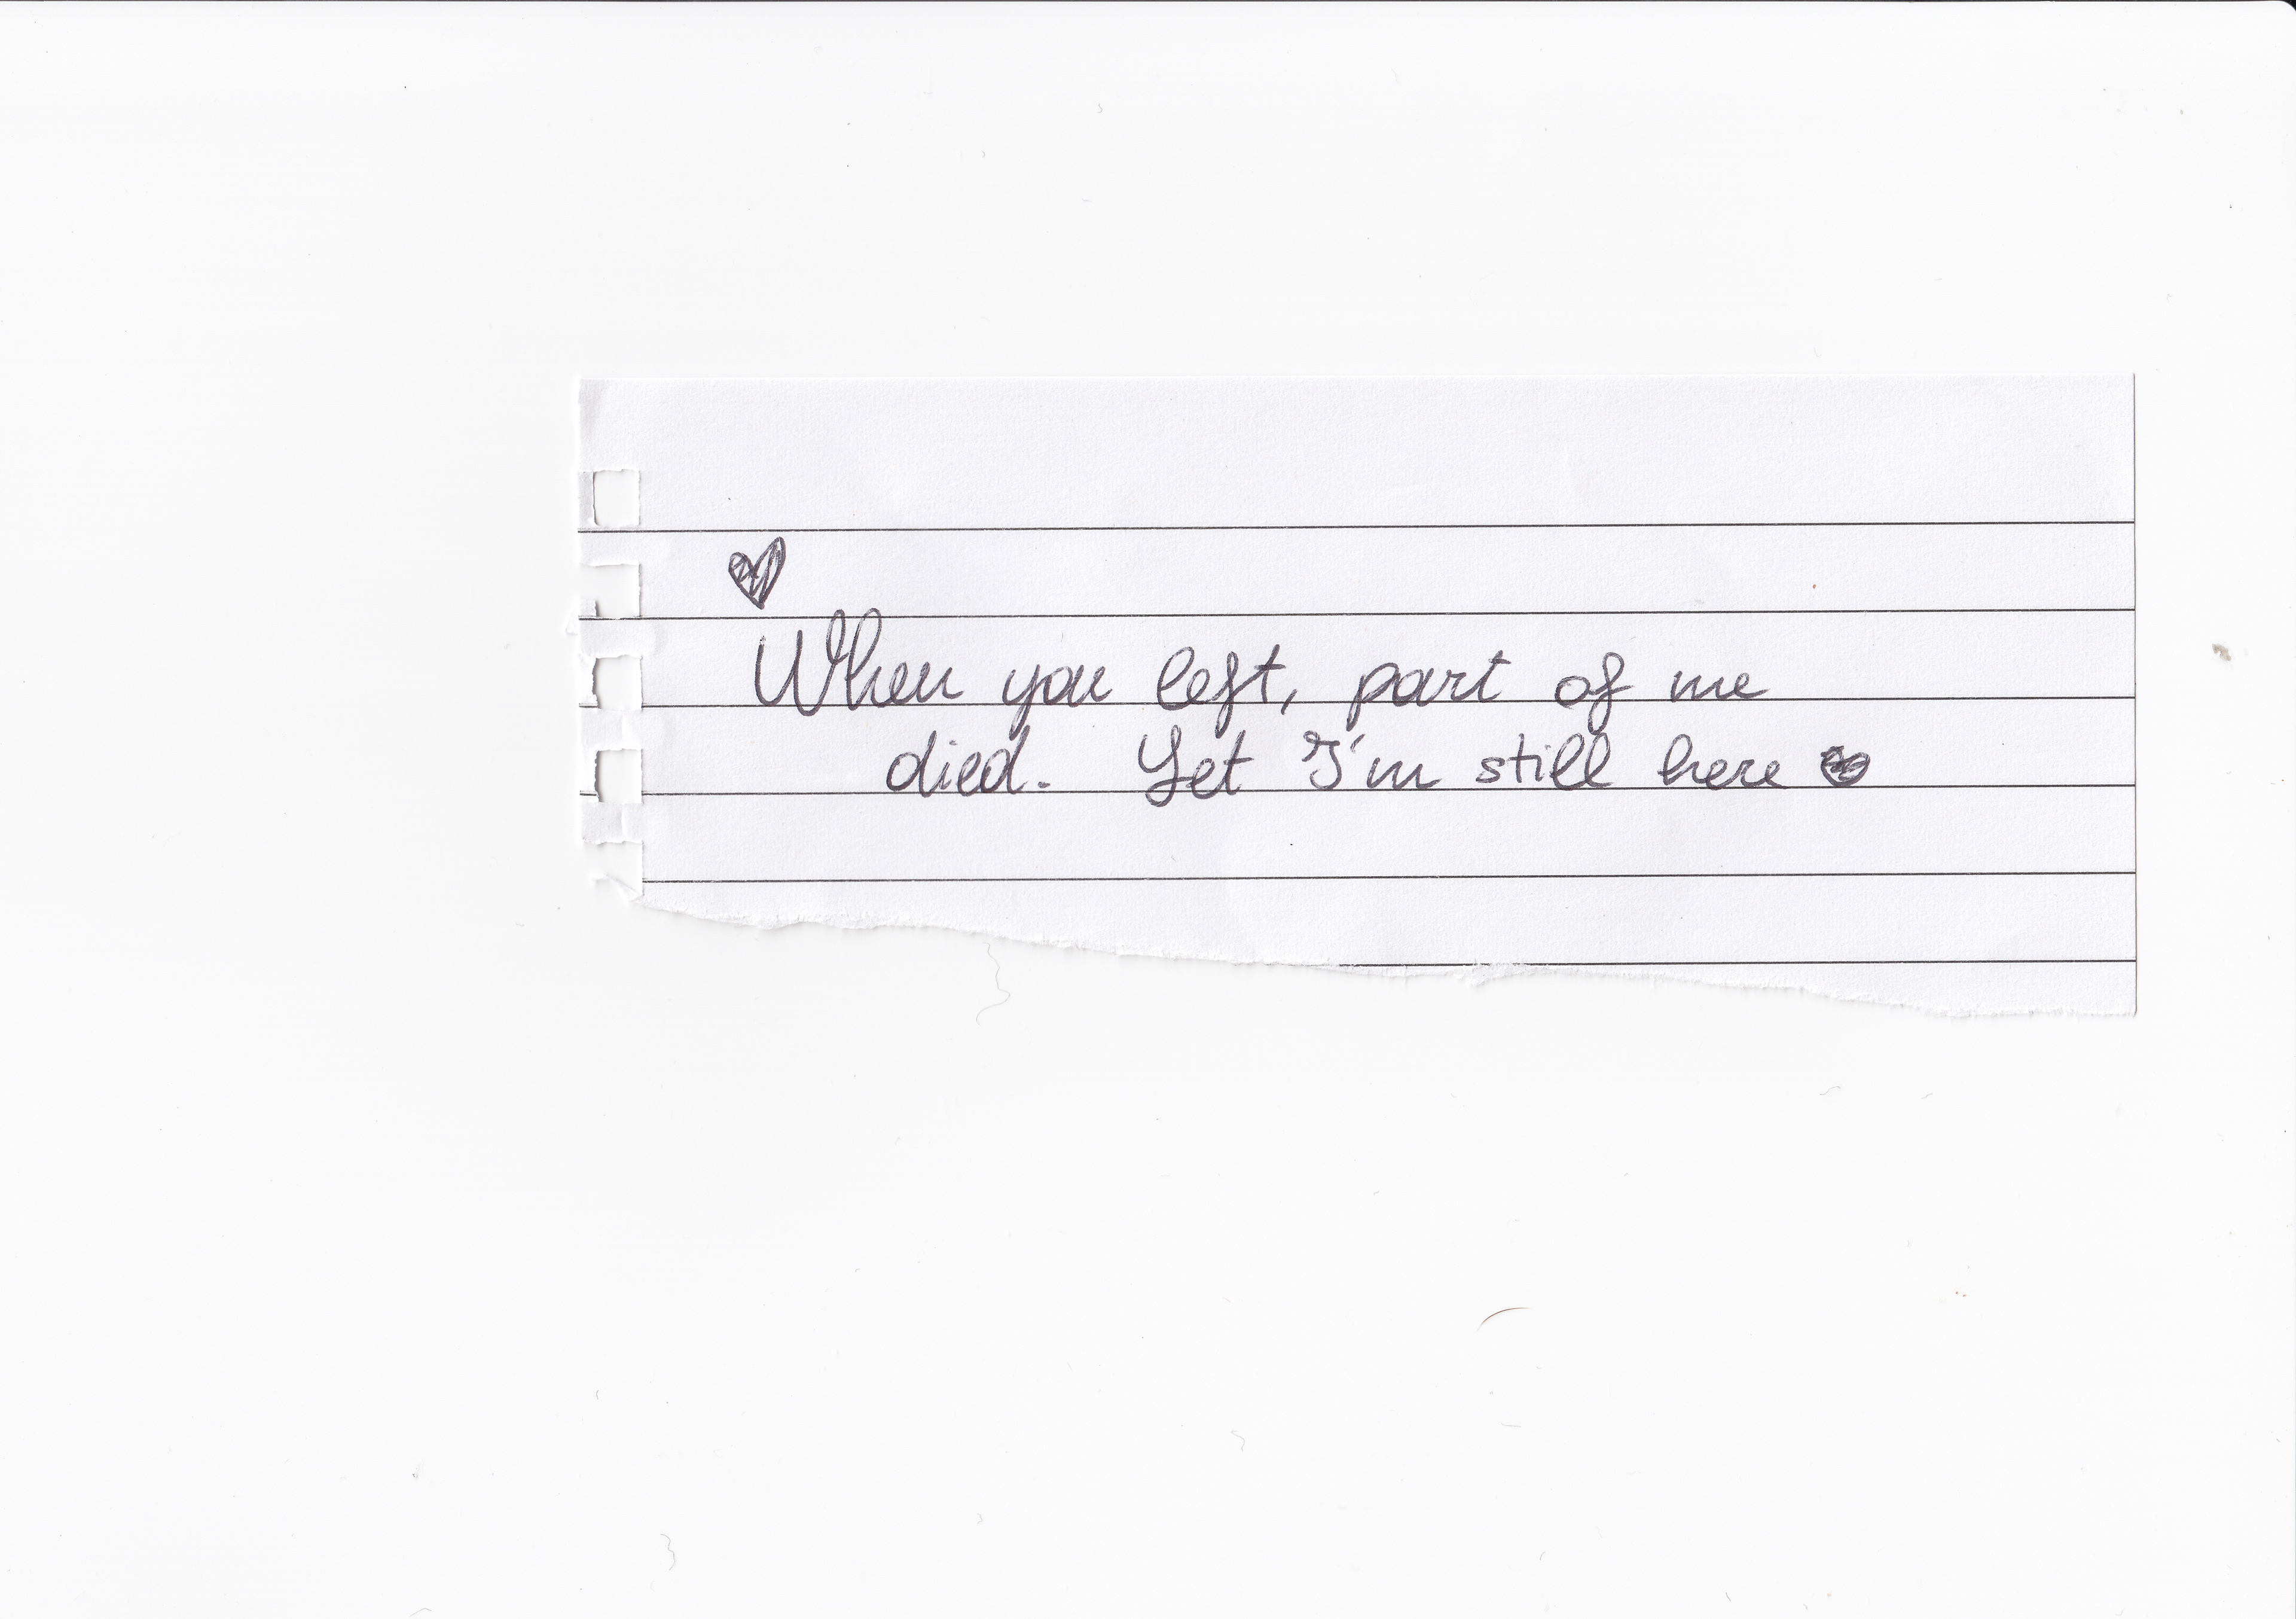 When you left, part of me
died. Yet I'm still here